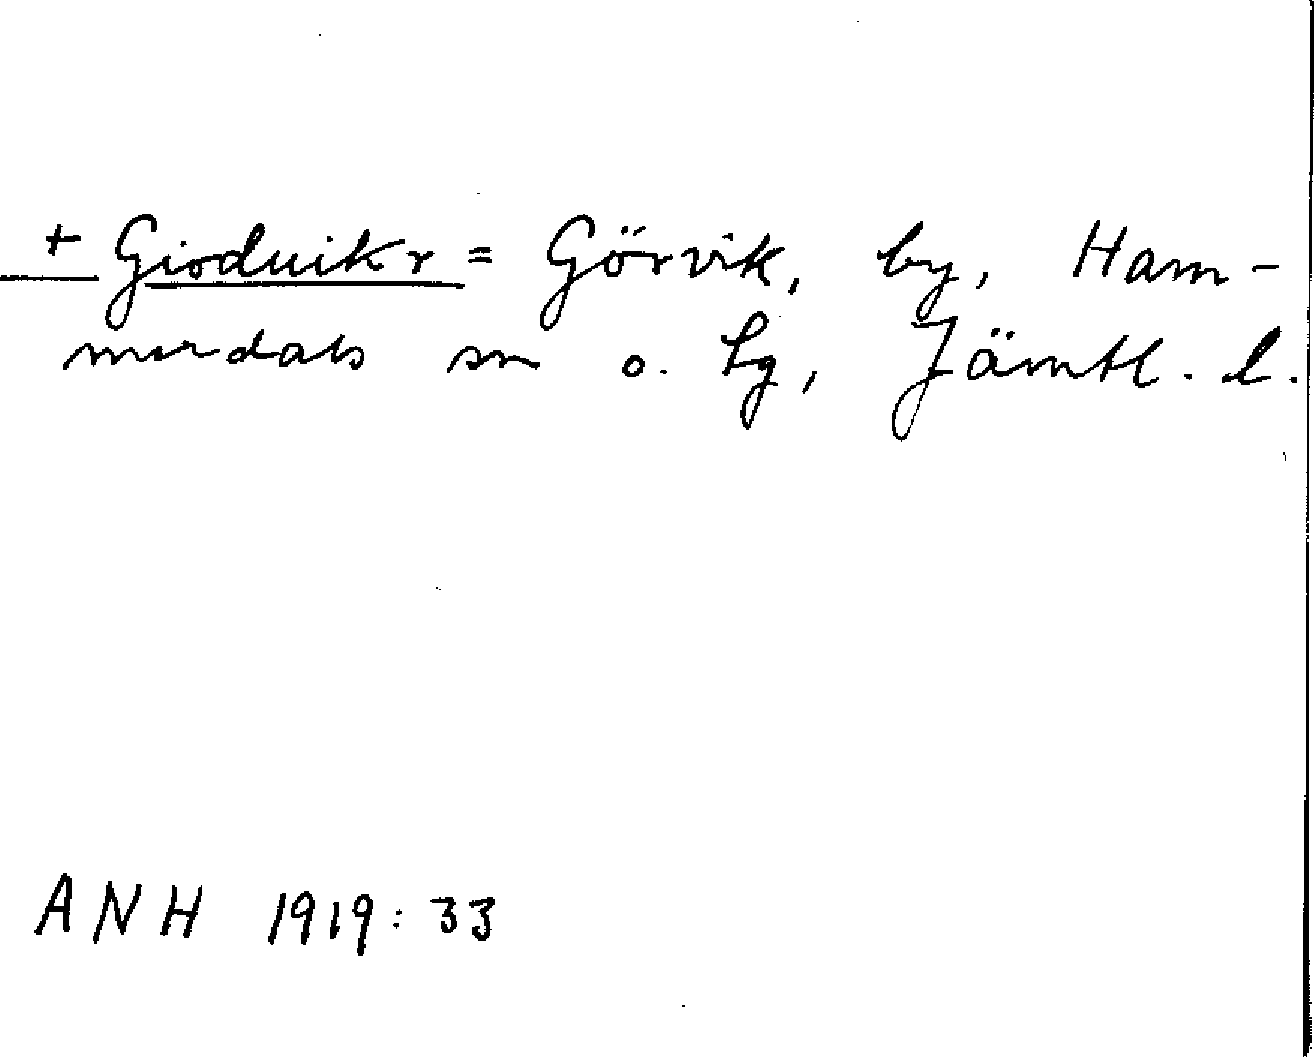 + Gioduikr = Görvik, by, Ham-
merdals sn o. tg, Jämtl. l.
ANH 1919:33